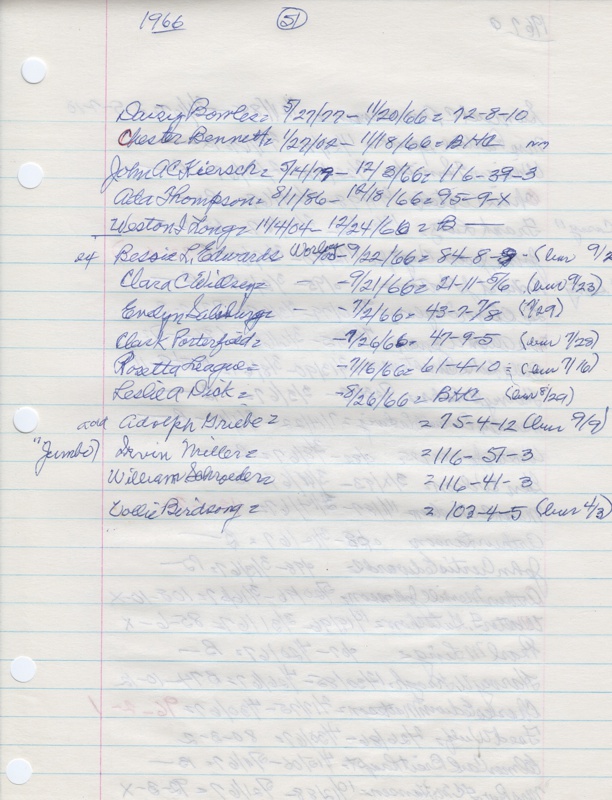 1966 51
Daisy Bowles = 5/27/77 - 11/20/66 = 72-8-10
Chester Bennett = 1/27/02 - 11/18/66 = BHC
John A C Kiersch = 5/4/79 - 12/3/66 = 116-39-3
Ada Thompson = 8/1/86 - 12/18/66 = 95-9-X
Weston I Long = 11/4/04 - 12/24/66 = B —
ex Bessie L. Edwards - 9/22/66 = 84-8-9 - ( 9/2
Clara C - 9/21/66 = 21-11-5/6 ( 9/23)
Evelyn - 7/2/66 = 43-7-7/8 (7/29)
Clark Porterfield = - 7/26/66 = 47-9-5 ( 7/28)
Rosetta League = - 7/16/66 = 61-4-10 = ( 7/16)
Leslie A Dick = - 8/26/66 = BHC ( 8/29)
add Adolph Griebe = = 75-4-12 ( 9/9)
"Jumbo") Irvin Miller = = 116-51-3
William Schroeder = = 116-41-3
Birdsong = = 102-4-5 ( 4/3)